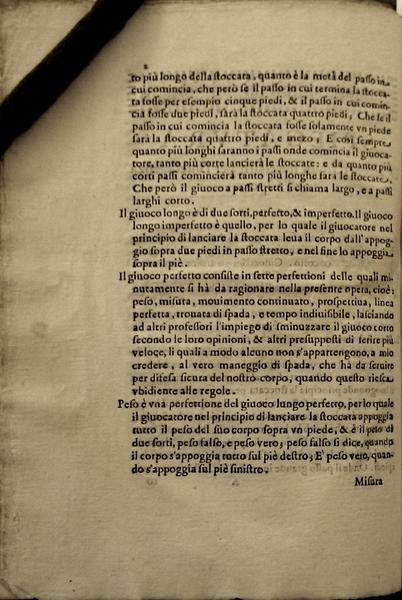 2
to più longo della stoccata, quanto è la metà del passo in
cui comincia, che però se il passo in cui termina la stocca-
ta fosse per esempio cinque piedi, & il passo in cui comin-
cia fosse due piedi, sarà la stoccata quattro piedi; Che se il
passo in cui comincia la stoccata fosse solamente vn piede
sarà la stoccata quattro piedi, e mezo; E così sempre,
quanto più longhi saranno i passi onde comincia il giuoca-
tore, tanto più corte lancierà le stoccate: e da quanto più
corti passi comincierà tanto più longhe sarà le stoccate.
Che però il giuoco a passi stretti si chiama largo, e a passi
larghi corto.
Il giuoco longo è di due sorti, perfetto, & imperfetto. Il giuoco
longo imperfetto è quello, per lo quale il giuocatore nel
principio di lanciare la stoccata leua il corpo dall'appog-
gio sopra due piedi in passo stretto, e nel fine lo appoggia
sopra il piè.
Il giuoco perfetto consiste in sette perfettioni delle quali mi-
nutamente si hà da ragionare nella presente opera, cioè;
peso, misura, mouimento continuato, prospettiua, linea
perfetta, trouata di spada, e tempo indiuisibile, lasciando
ad altri professori l'impiego di sminuzzare il giuoco corto
secondo le loro opinioni, & altri presupposti di ferire più
veloce, li quali a modo alcuno non s'appartengono, a mio
credere, al vero maneggio di spada, che hà da seruire
per difesa sicura del nostro corpo, quando questo riesca
vbidiente alle regole.
Peso è vna perfettione del giuoco lungo perfetto, per lo quale
il giuocatore nel principio di lanciare la stoccata appoggia
tutto il peso del suo corpo sopra vn piede, & è il peso di
due sorti, peso falso, e peso vero; peso falso si dice, quando
il corpo s'appoggia tutto sul piè destro; E' peso vero, quan-
do s'appoggia sul piè sinistro.
Misura